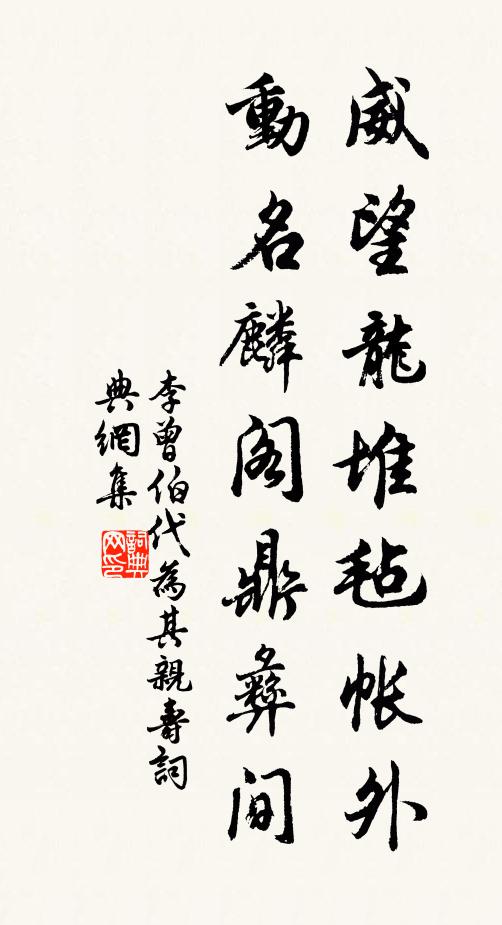 威望龍堆毡帐外
動名麟阁鼎彝间
李曾伯代為其親壽詞
典網集
詞典网印